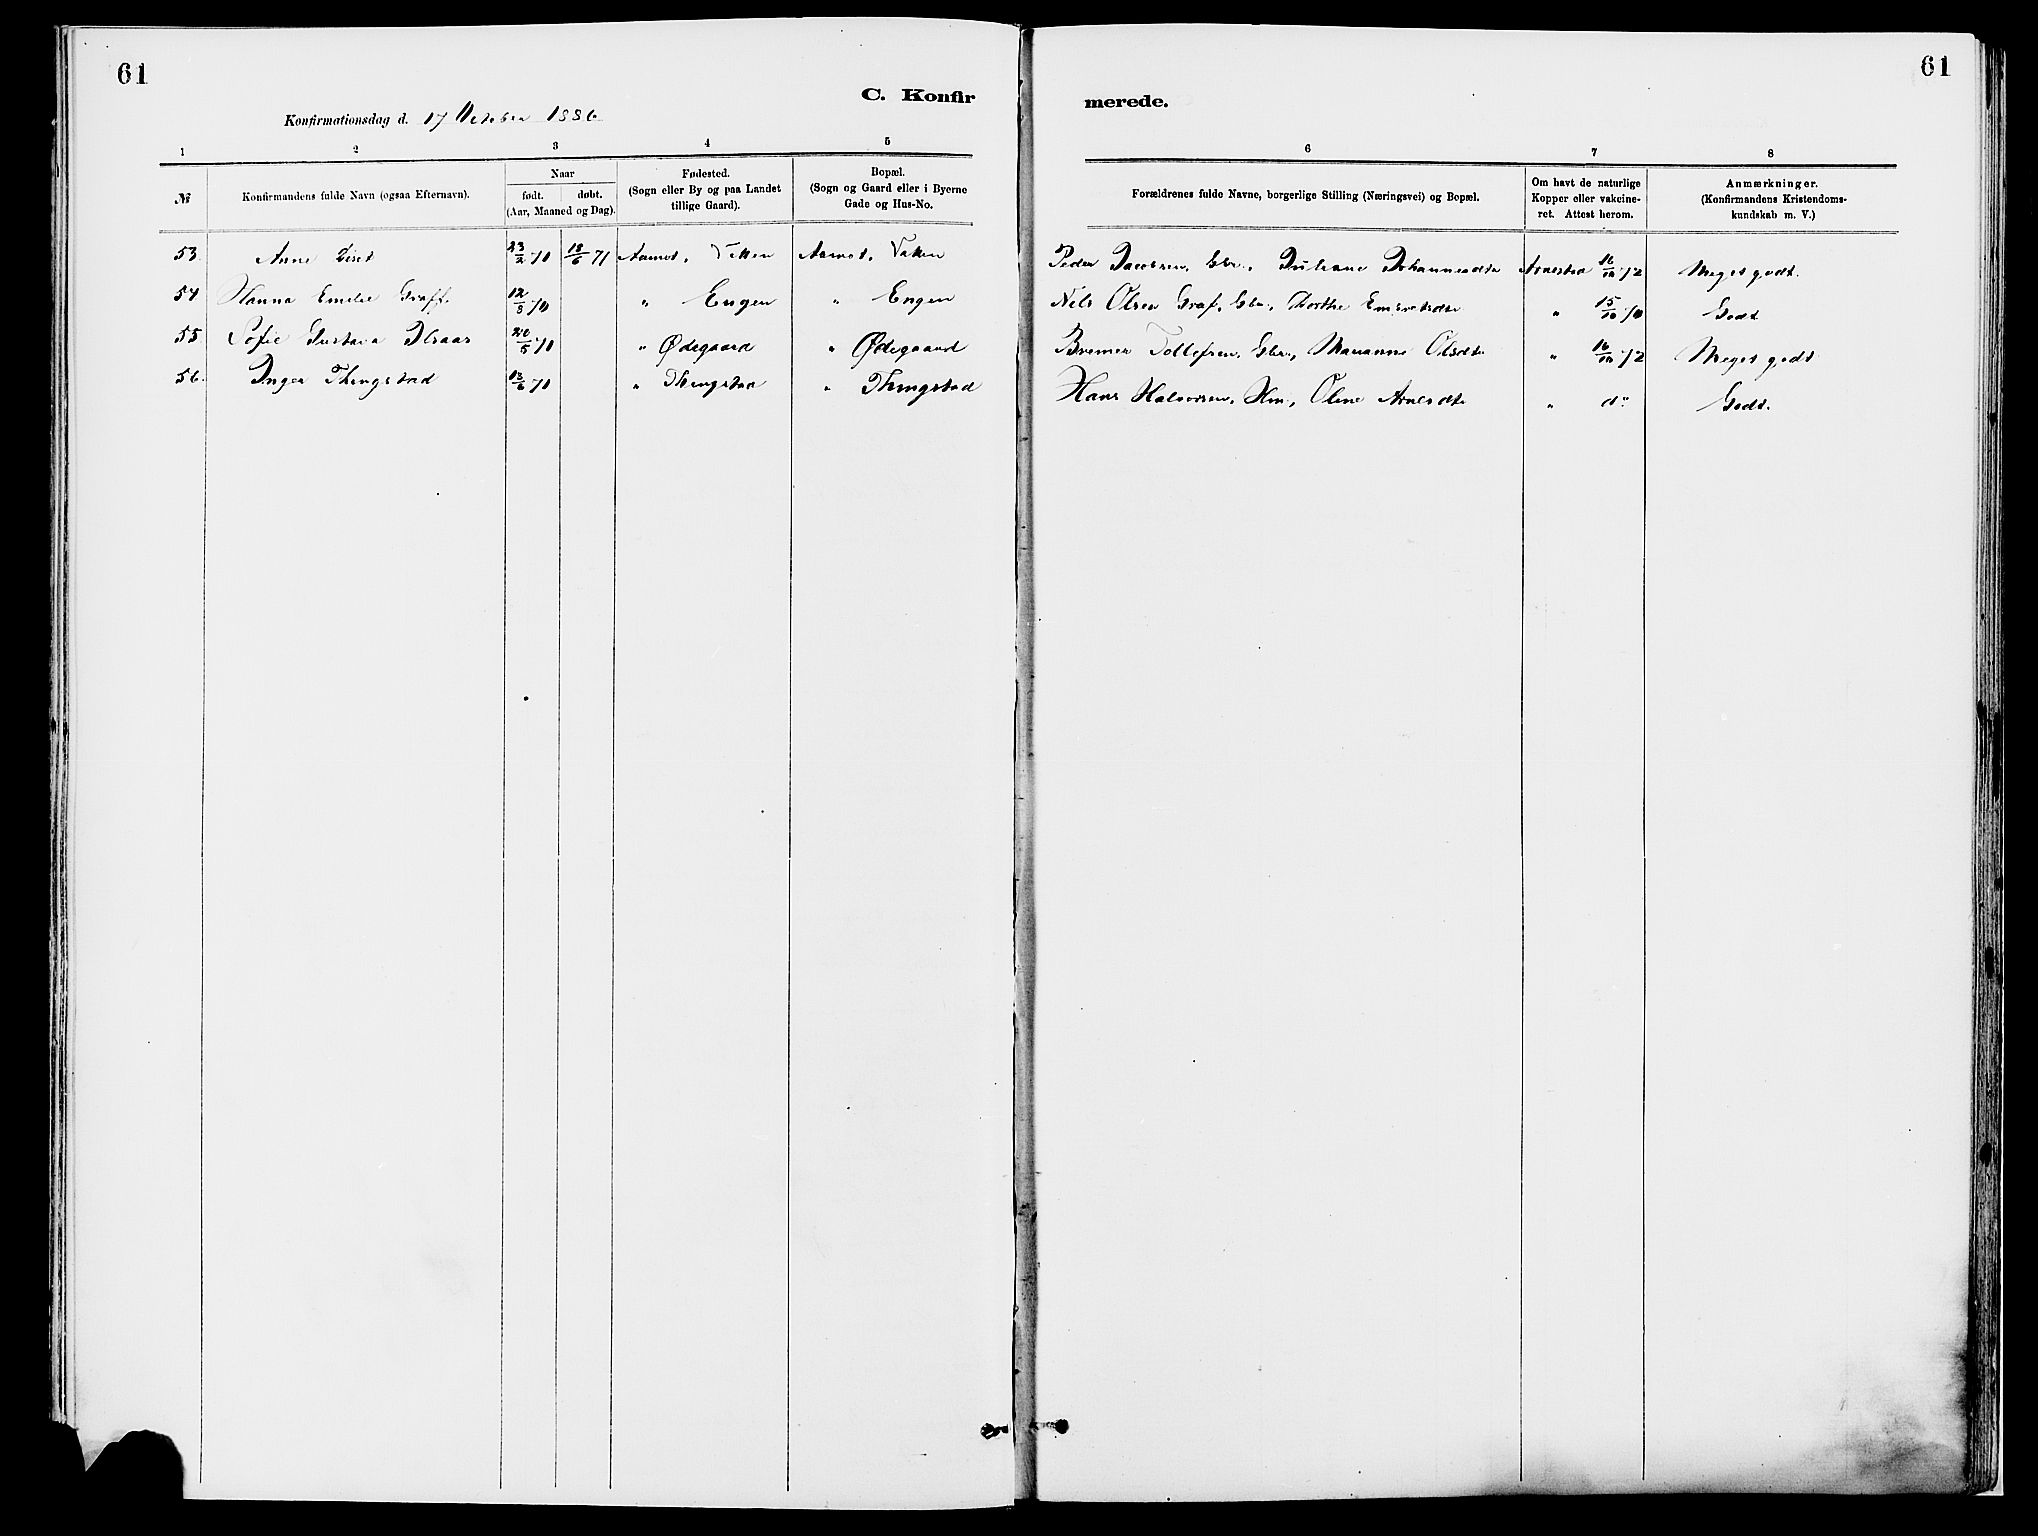 61
C. Konfir
Konfirmationsdag d. 17 October 1886
1 2 3 4 5
№
Konfirmandens fulde Navn (ogsaa Efternavn).
Naar
født. døbt.
(Aar, Maaned og Dag).
Fødested.
(Sogn eller By og paa Landet
tillige Gaard).
Bopæl.
(Sogn og Gaard eller i Byerne
Gade og Hus-No.
53. Anne 23/2 70 18/6 71 Aamot, Aamot,
54 Hanna Emilie Graff. 12/8 70 " Engen " Engen
55 Sofie Gustava 5 70 " Ødegaard " Ødegaard
56. Inga Thingstad 13/6 70 " Thingstad " Thingstad
61
merede.
6 7 8
Forældrenes fulde Navne, borgerlige Stilling (Næringsvei) og Bopæl.
Om havt de naturlige
Kopper eller vakcine-
ret. Attest herom.
Anmærkninger.
(Konfirmandens Kristendoms-
kundskab m. V.)
Peder Jacobsen, Gbr., Juliane Johannesdtr 16/10 72 Meget godt.
Nils Olsen Graf, Gbr., Dorthe " 15/10 70 Godt
Tollefsen, Gbr., Marianne Olsdtr " 16/10 72 Meget godt
Hans Halvorsen, Hm., Oline Arnesdtr " do Godt.